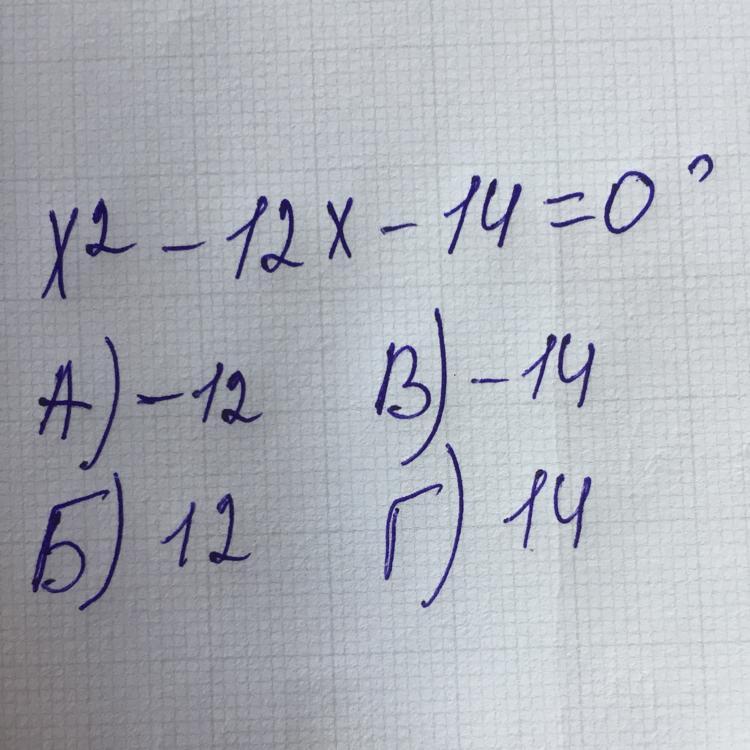 x² - 12x - 14 = 0?
А) -12 В) -14
Б) 12 Г) 14